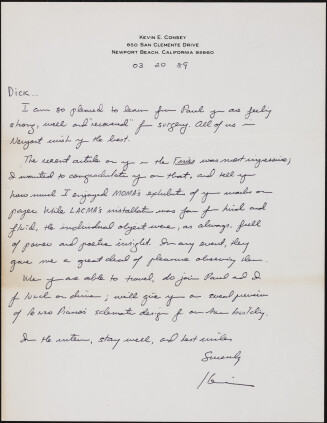 KEVIN E. CONSEY
850 SAN CLEMENTE DRIVE
NEWPORT BEACH, CALIFORNIA 92660
03 20 89
Dick...
I am so pleased to learn from Paul you are feeling
strong, well and "recovered" from surgery. All of us in
Newport wish you the best.
The recent article on you in the Times was most impressive;
I wanted to congratulate you on that, and tell you
how much I enjoyed MOMA's exhibit of your works on
paper. While LACMA's installation was far more kind and
fluid, the individual objects were, as always, full
of power and poetic insight. In any event, they
gave me a great deal of pleasure observing them.
When you are able to travel, do join Paul and I
for lunch or dinner; will give you an overall preview
of Renzo Piano's schematic design for our new building.
In the interim, stay well, and best wishes
Sincerely
Kevin